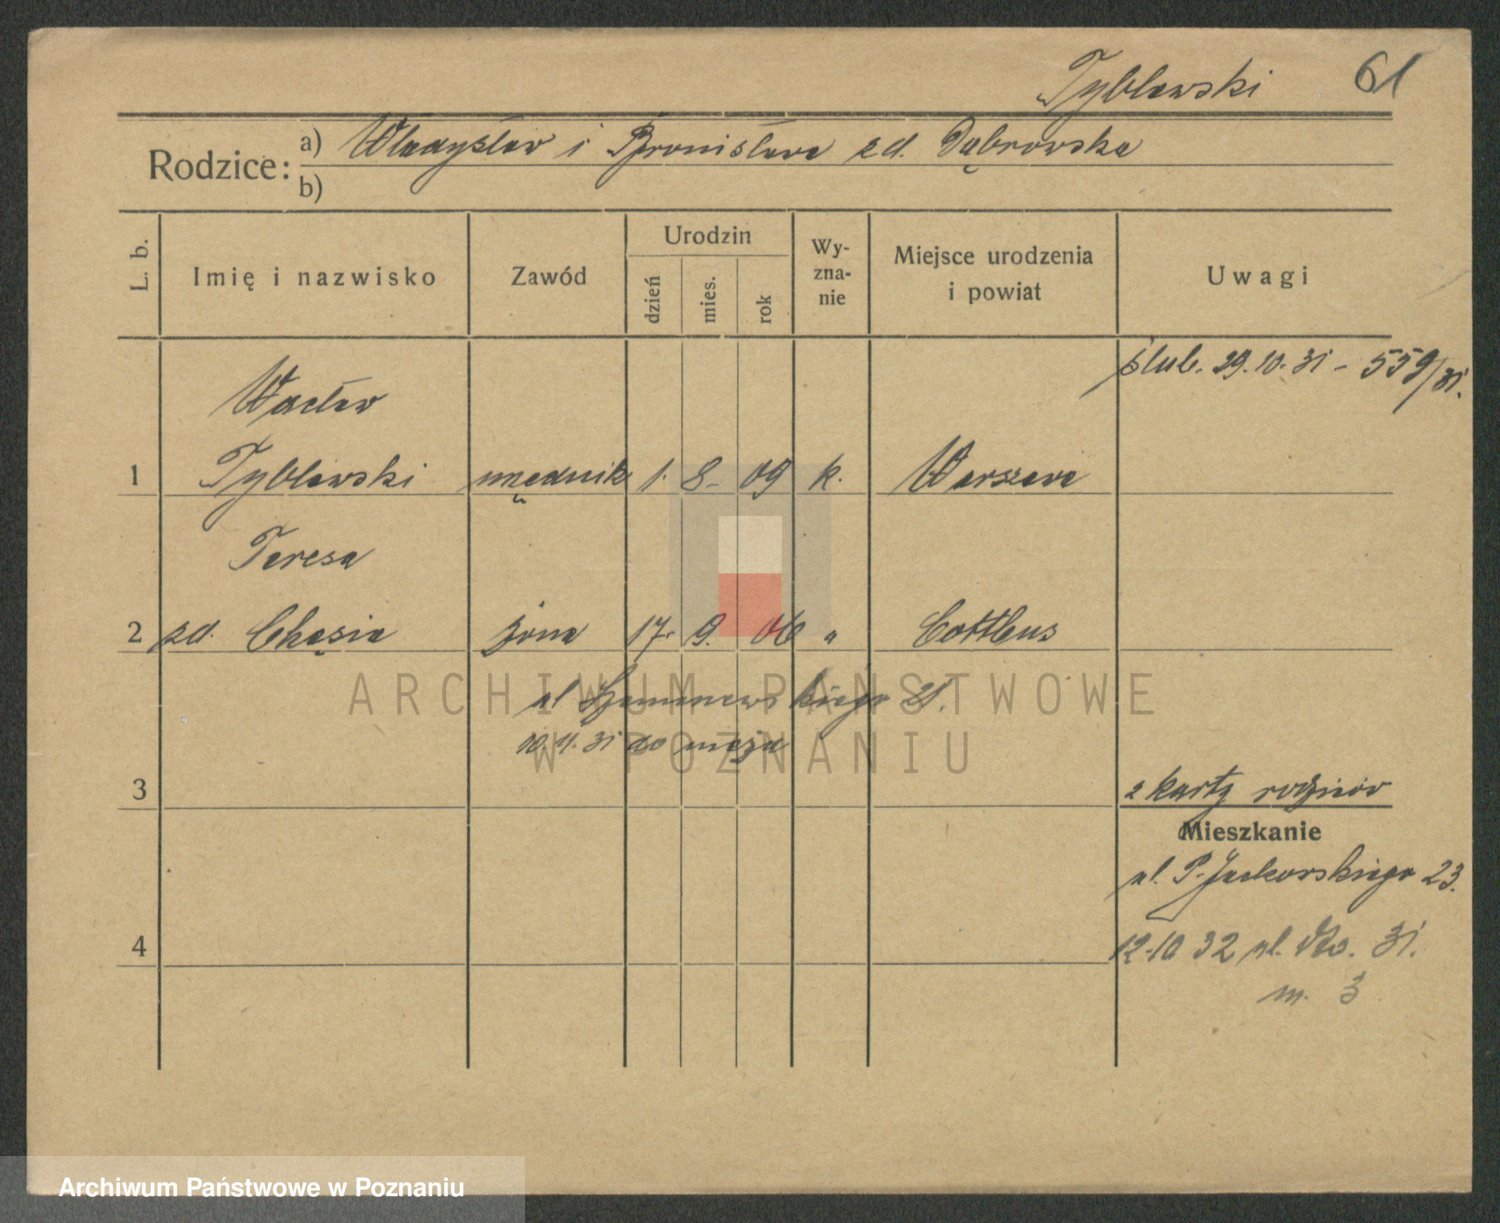 Tyblewski 61
Rodzice: a) Władysław i Bronisława zd. Dąbrowska
b)
L. b.
Imię i nazwisko
Zawód
Urodzin
dzień
mies.
rok
Wy-
zna-
nie
Miejsce urodzenia
i powiat
Uwagi
ślub. 29.10.31 - 559/31.
Wacław
1 Tyblewski urzędnik 1. 8. 09 k. Warszawa
Teresa
2 zd. Chęsia żona 17. 9. 06 " Cottbus
ul. 21.
10.11.31 do męża
3
z karty rodziców
Mieszkanie
ul. P. Jackowskiego 23.
4
12.10 32 ul. 31.
m. 3
ARCHIWUM PAŃSTWOWE
W POZNANIU
Archiwum Państwowe w Poznaniu